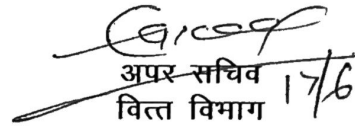 अपर सचिव
वित्त विभाग 17/6